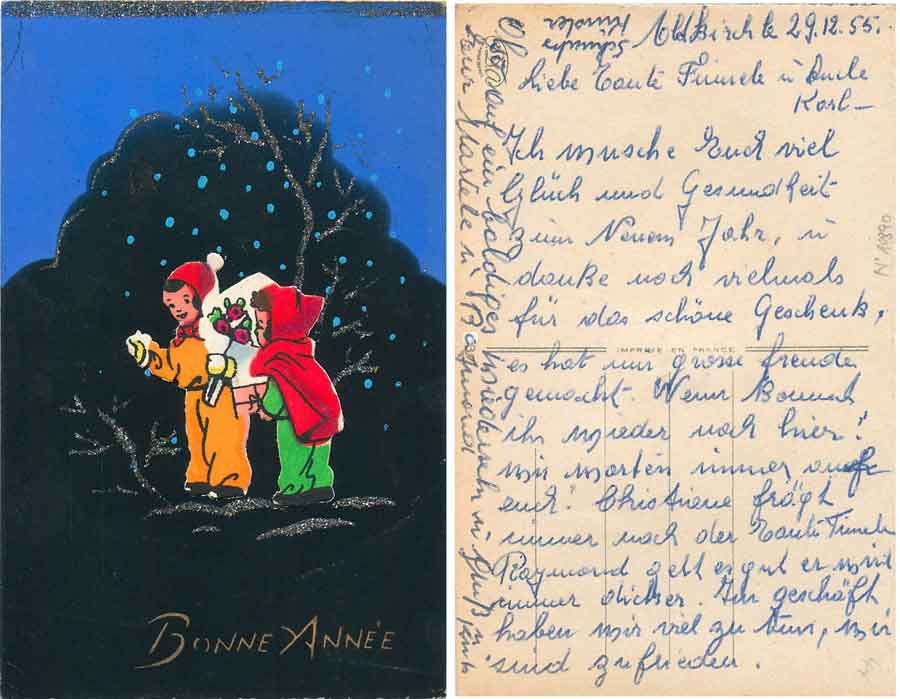 BONNE ANNÉE
Altkirch le 29.12.55.
Liebe Tante u Onkle
Karl –
Ich wusche Euch viel
Glück und Gesundheit
zum Neuem Jahr, u
danke noch vielmals
für das schöne Geschenk,
IMPRIMÉ EN FRANCE
es hat mir grosse freude
gemacht. Wenn
ihr wieder nach hier!
wir warten immer auf
euch! Christiane frägt
immer nach der Tante
Raymond geht es gut er wird
immer dicker. Im geschäft
haben wir viel zu tun, wir
sind zufrieden.
Also auf ein baldiges wiedersehn u
Raymond
N° 19890